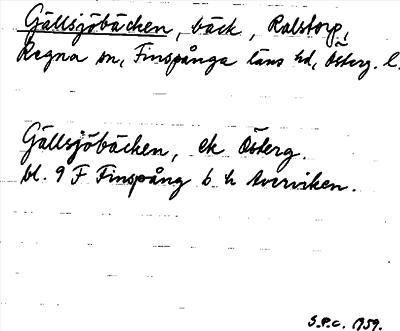 Gällsjöbäcken, bäck, Ralstorp,
Regna sn, Finspånga läns hd, Österg. l.
Gällsjöbäcken, ek Österg.
bl. 9 F Finspång b h Averviken.
S.P.C. 1959.